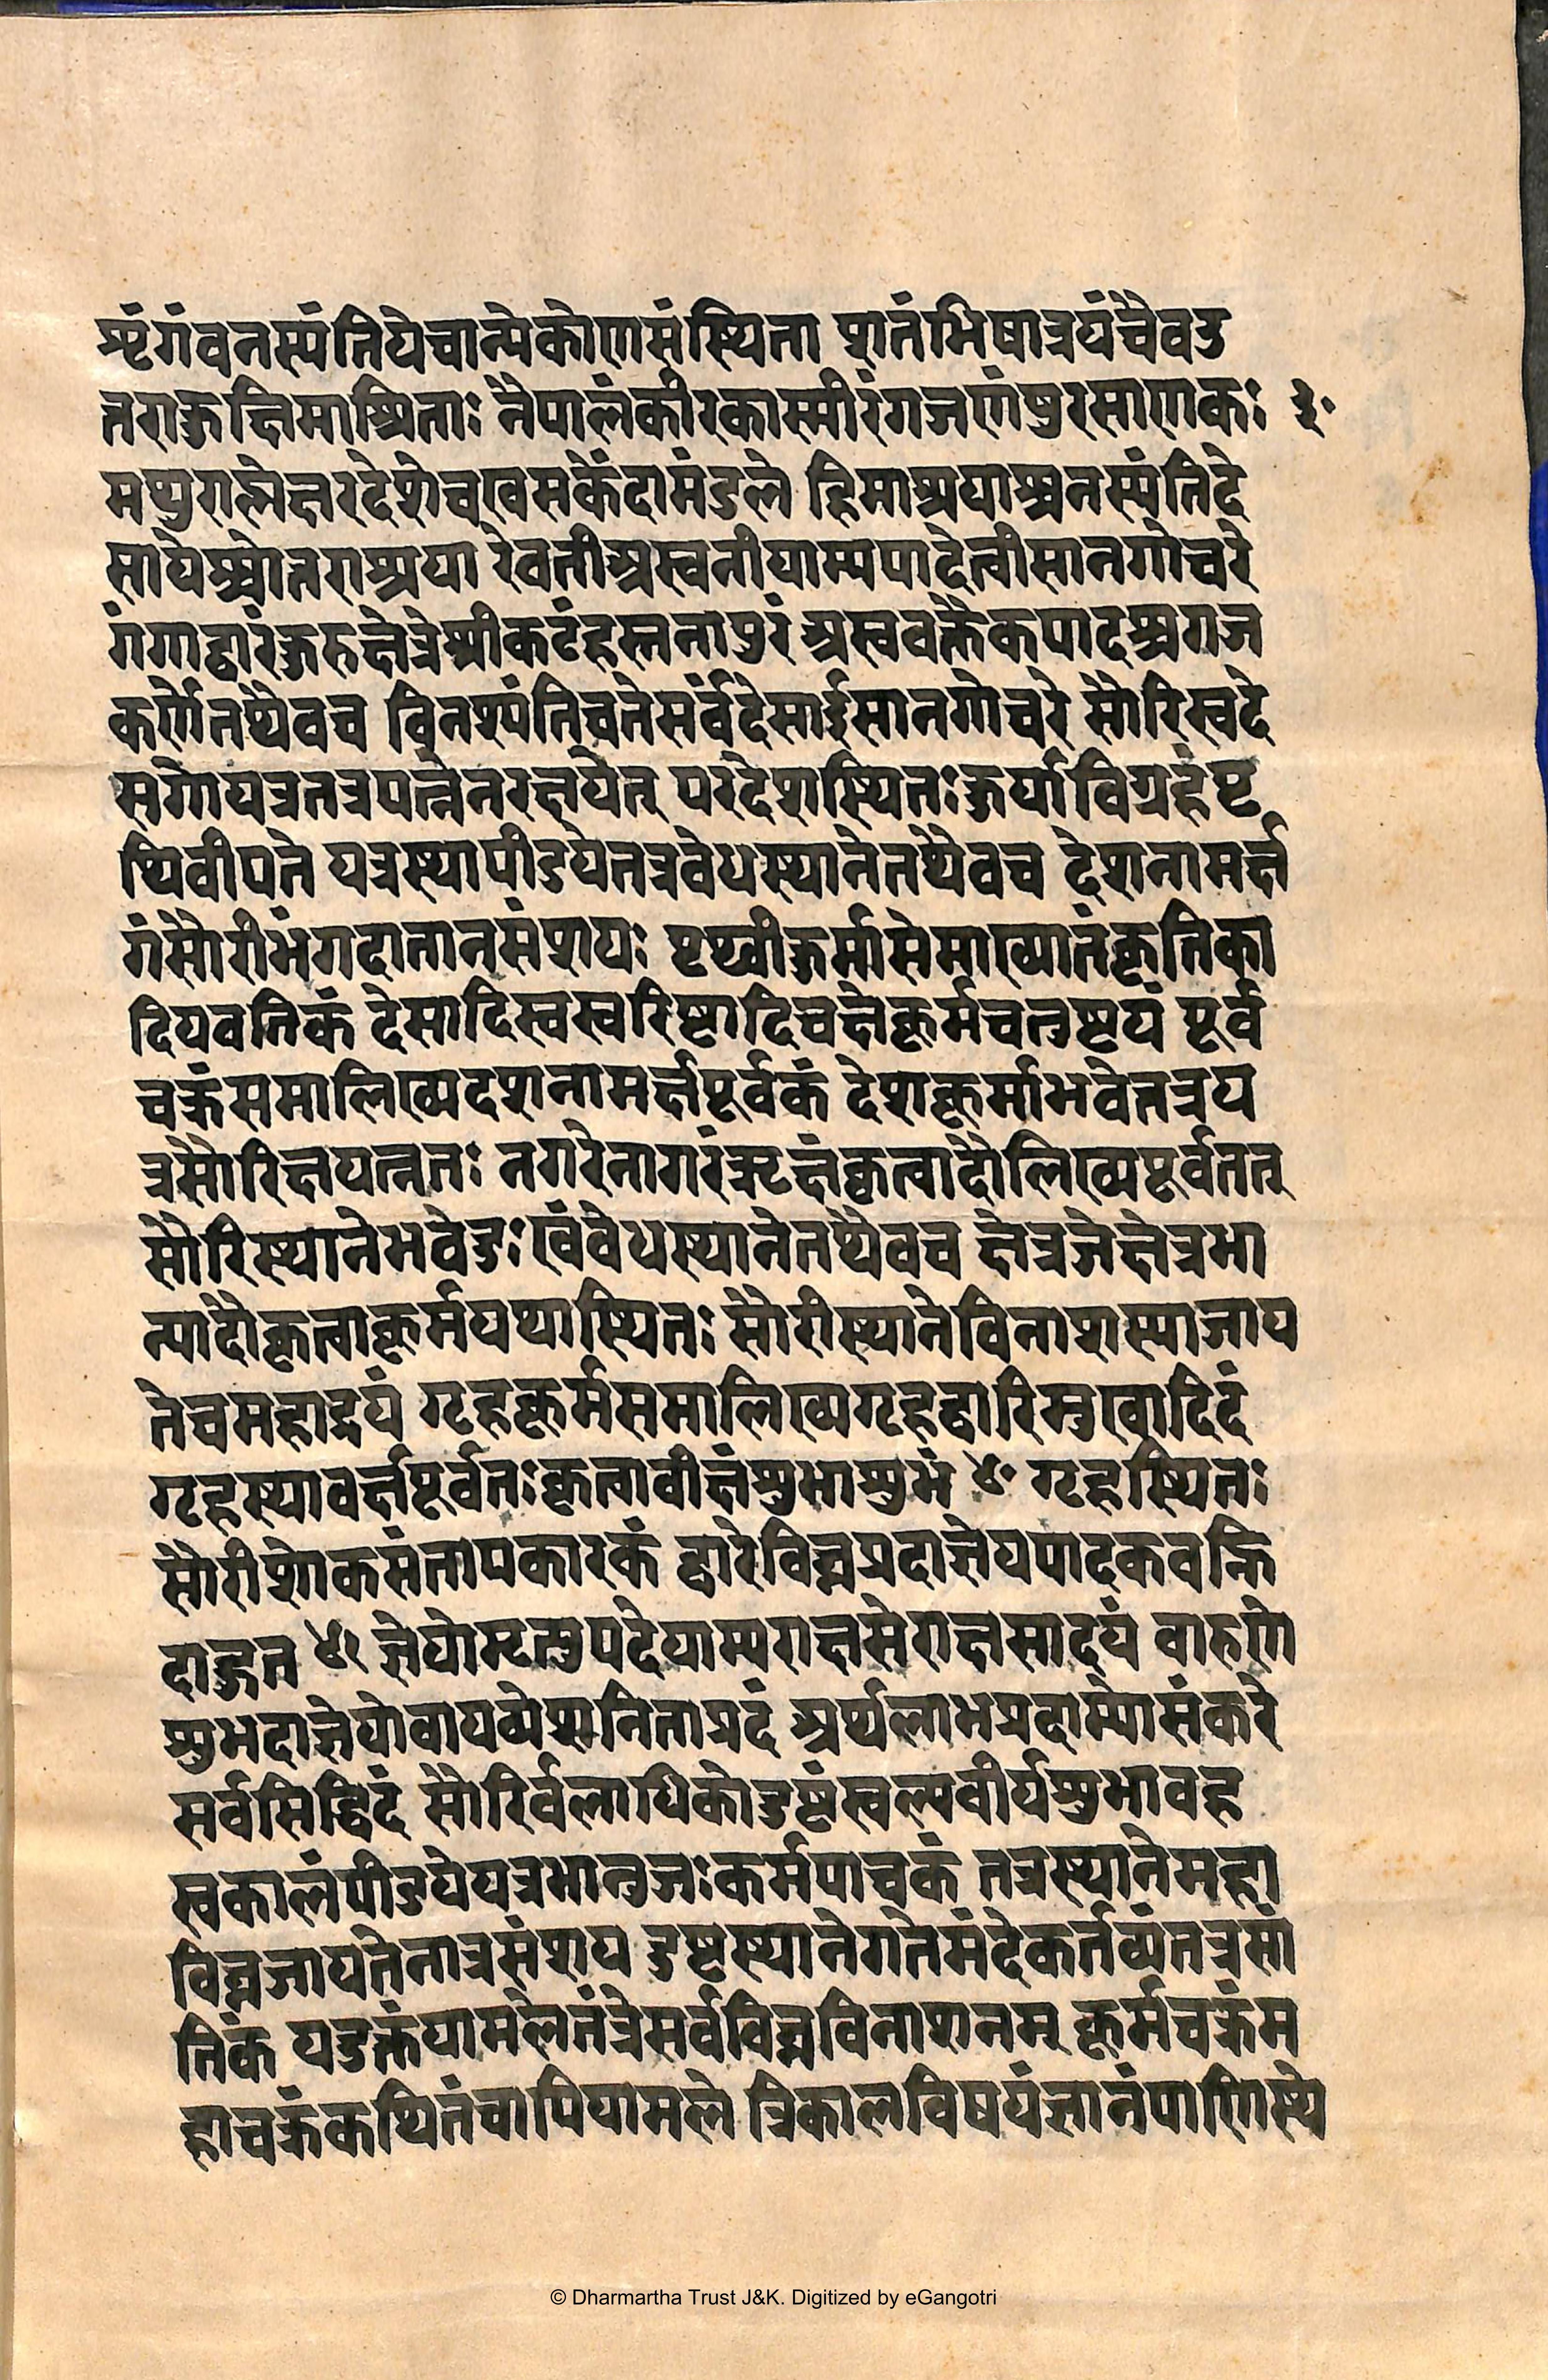 शृंगंवनस्यंतियेचान्येकोणसंस्थिता शतंभिषात्रयंचैवउ
तराकुक्षिमाश्रिताः नैपालंकीरकास्मीरंगजणंपुरसाणकः ३॰
मथुरालेक्षरदेशेचखसकेंदामंडले हिमाश्रयाश्चनस्यंतिदे
सायेश्चोतराश्रया रेवतीअस्वनीयाम्यपादेत्वीसानगोचरे
गंगाद्वारंकुरुक्षेत्रेश्रीकटंहस्तनापुरं अस्ववक्त्रैकपादश्चगज
कर्णेतथैवच विनश्यंतिचतेसर्वदेसाईसानगोचरे सौरिस्वदे
सगोयत्रतत्रयत्नेनरक्षयेत् परदेशस्थितःकुर्याविग्रहंपृ
थिवीपते यत्रस्थापीडयेतत्रवेधस्थानेतथैवच देशनामर्क्ष
गंसौरीभंगदातानसंशयः पृथ्वीकुर्मासेमाख्यातंकृतिका
दियवतिकं देसादिस्वस्वरिष्टादिचक्षेकूर्मचतुष्टयं पूर्व
चक्रंसमालिख्यदशनामर्क्षपूर्वकं देशकूर्माभवेत्तत्रय
त्रसौरिक्षयत्नतः नगरेनागरंऋक्षंकृत्वादौलिख्यपूर्वतत्
सौरिस्थानेभवेदुःखंवेधस्थानेतथैवच क्षेत्रजेक्षेत्रभा
न्यादौकृत्वाकूर्मयथास्थितः सौरीस्थानेविनाशस्याजाय
तेचमहाद्भयं गृहकूर्मसमालिख्यगृहद्वारिमुखादिदं
गृहस्थावर्क्षपूर्वतःकृत्वावीक्षंशुभाशुभं ४॰ गृहस्थितः
सौरीशोकसंतापकारकं द्वारेविघ्नप्रदाज्ञेयपादकवह्नि
दाकुन ४१ ज्ञेयोमृत्युपदेयाम्यराक्षसेराक्षसाद्यं वारुणे
शुभदाज्ञेयोवायव्येशनिताप्रदं अर्थलाभप्रदाम्योसंकरे
सर्वसिद्धिदं सौरिर्वलाधिकोदुष्टंस्वल्पवीर्यशुभावह
स्वकालंपीडयेयत्रभानुजःकर्मपाचकं तत्रस्थानेमहा
विघ्नजायतेनात्रसंशय दुष्टस्थानेगतेमंदेकर्तव्यंतत्रसां
तिकं यदुक्तंयामलेतंत्रेसर्वविघ्नविनाशनम् कूर्मचक्रंम
हाचक्रंकथितंचापियामले त्रिकालविषयंज्ञानंपाणिस्थे
© Dharmartha Trust J&K. Digitized by eGangotri